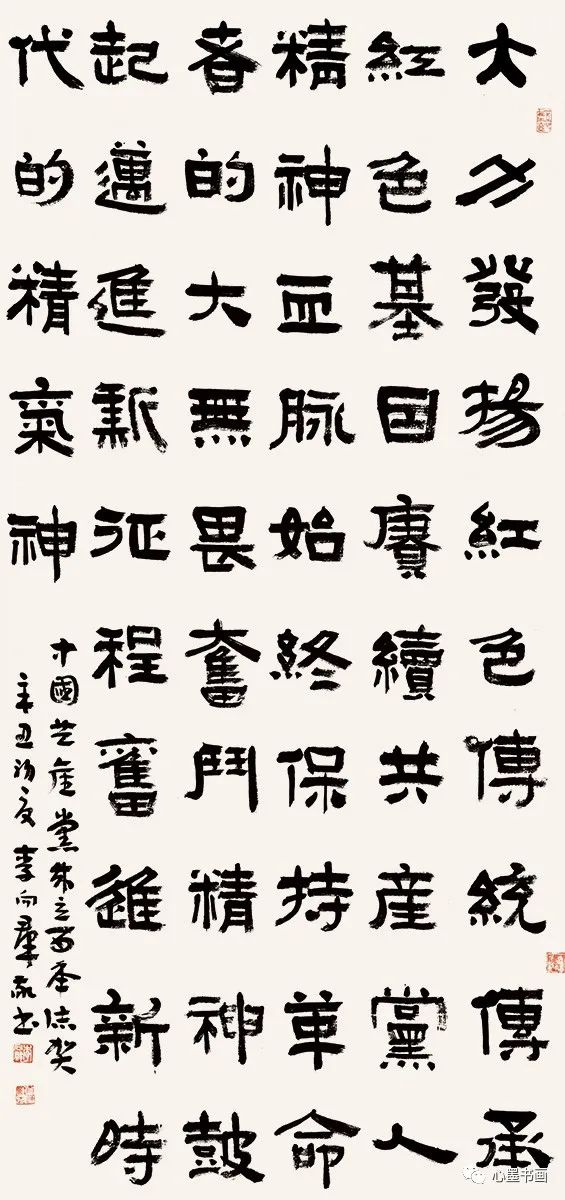 大力發揚紅色傳統傳承
紅色基因賡續共産黨人
精神血脉始終保持革命
者的大無畏奮鬥精神鼓
起邁進新征程奮進新時
代的精氣神
中國共產黨成立百年誌賀
辛丑初夏李向群敬书
心墨书画